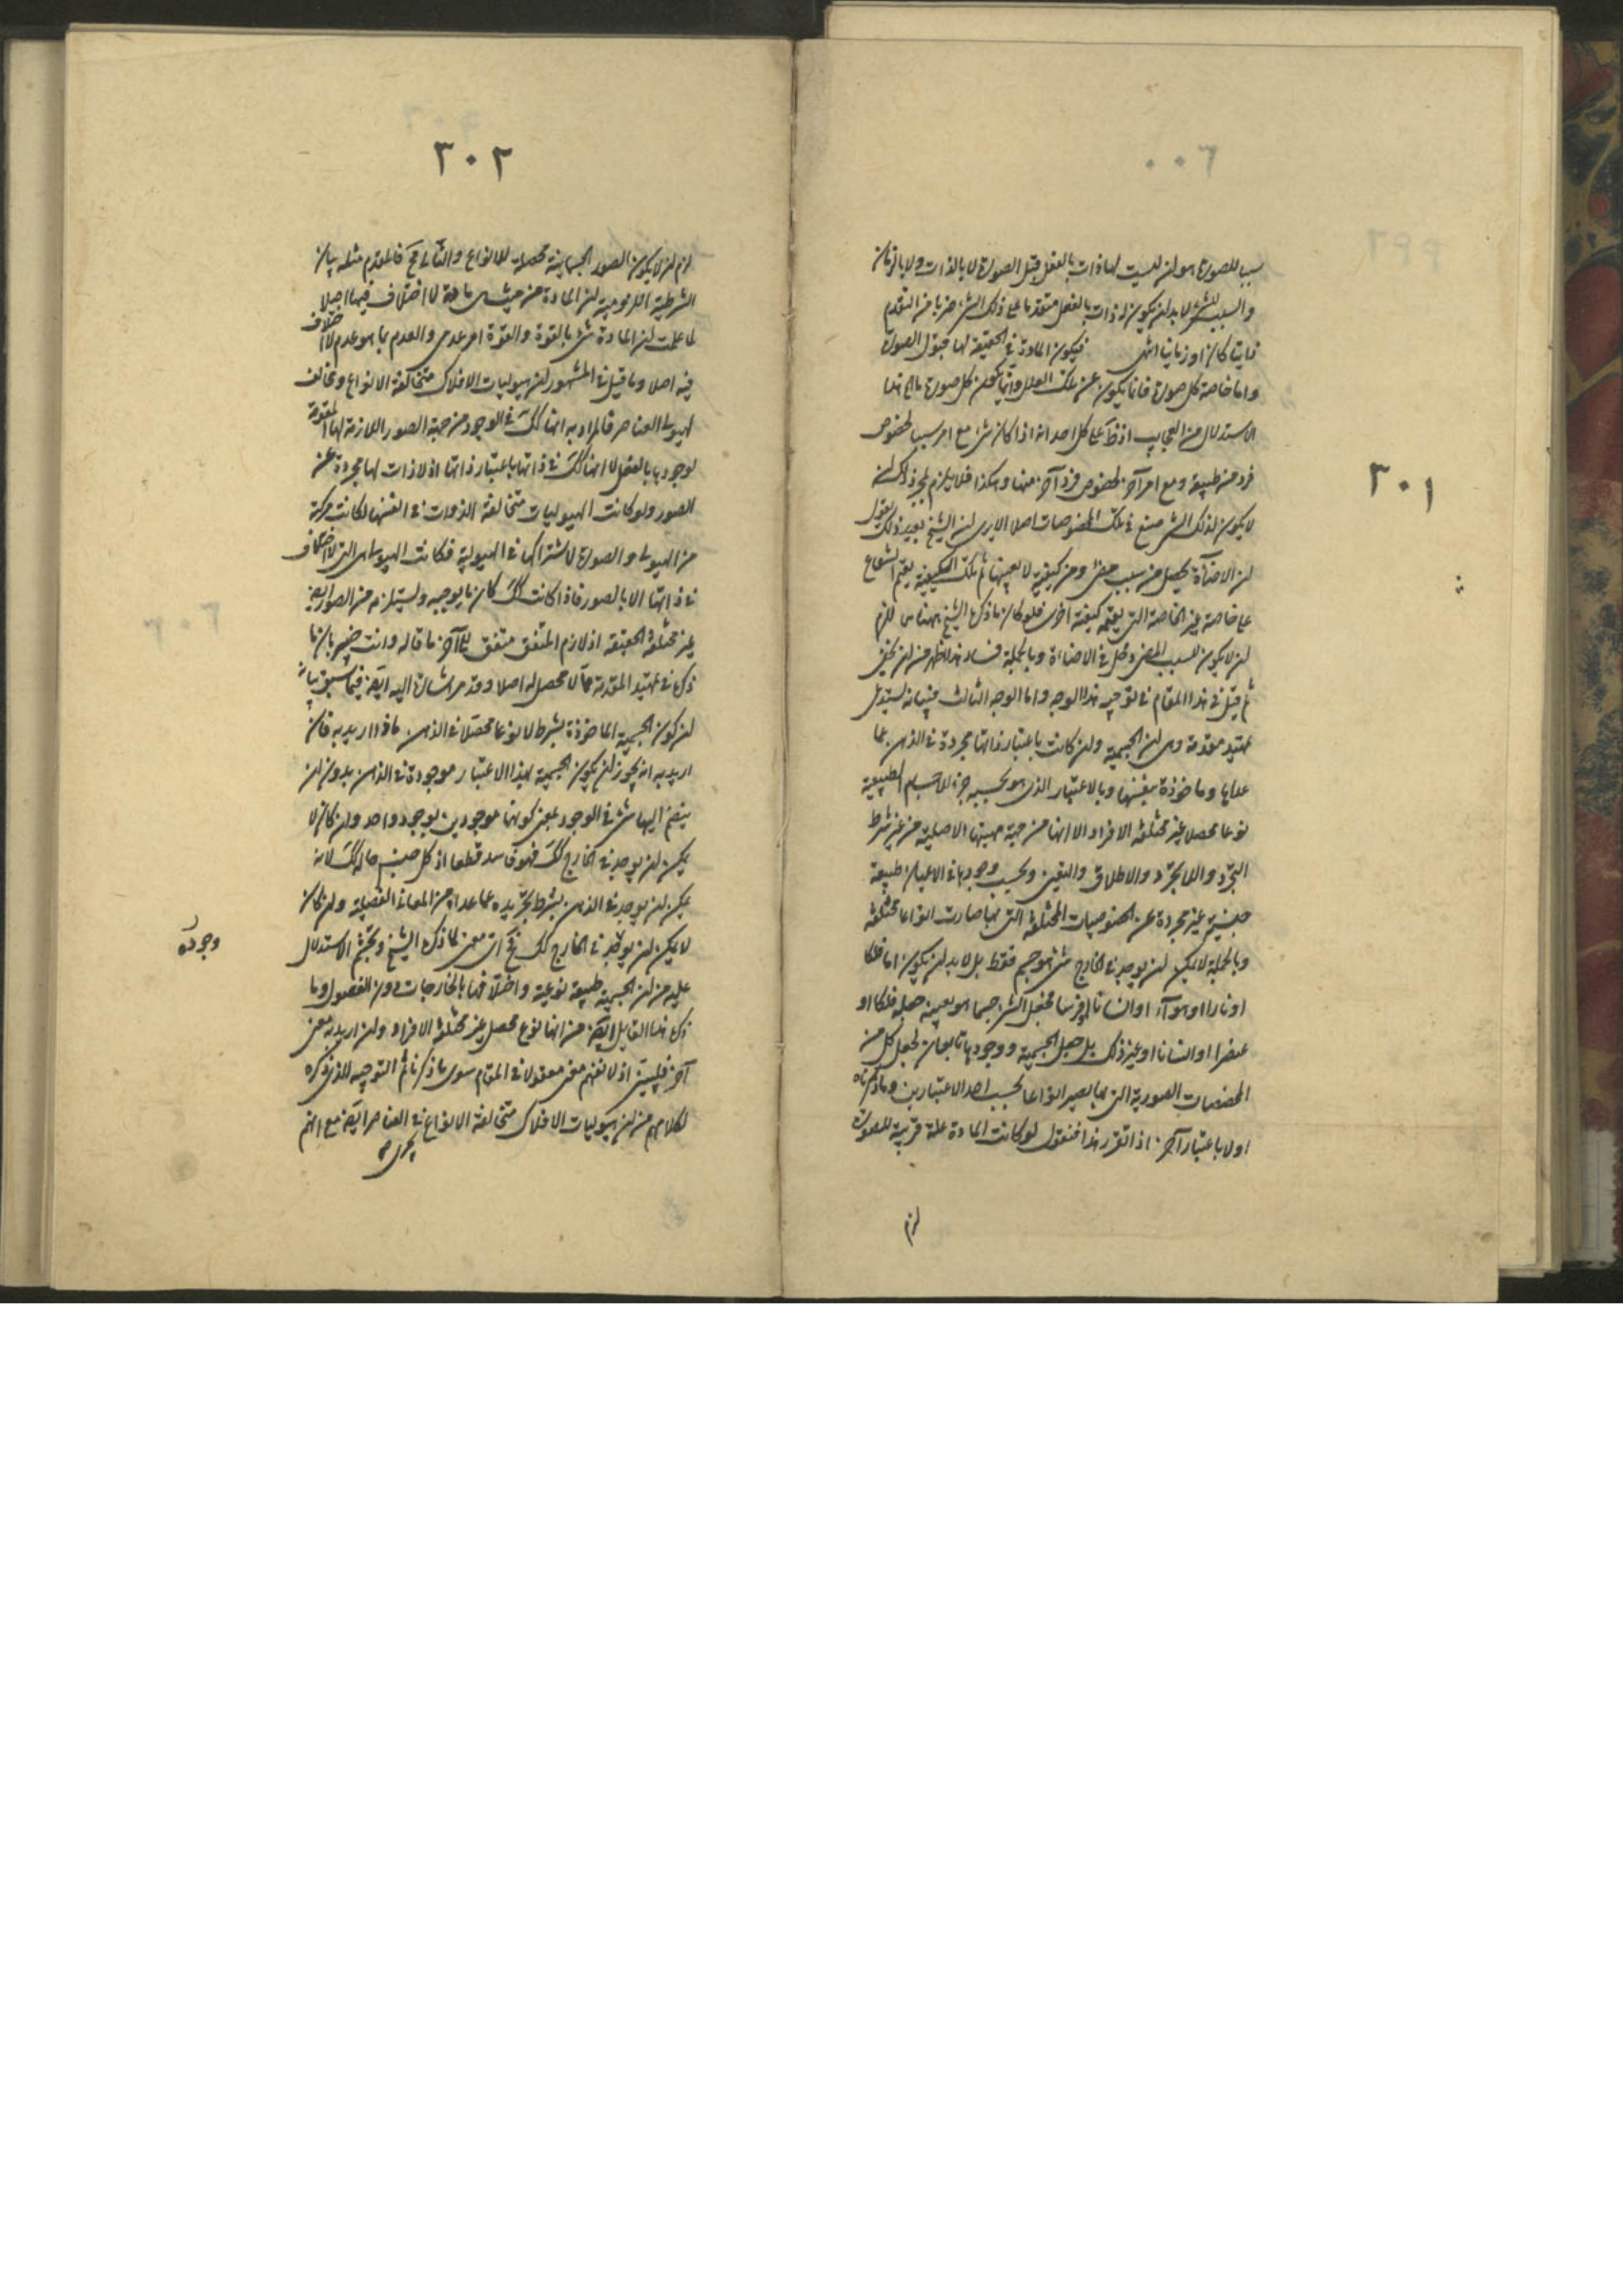 ٣٠١
سببا للصورة هو ان ليست لها ذات بالفعل قبل الصورة لا بالذات ولا بالزمان
والسبب للشئ لا بد ان يكون له ذات بالفعل متقدما على ذلك الشئ ضربا من التقدم
ذاتيا كان او زمانيا انتهى فيكون المادة في الحقيقة لها قبول الصورة
واما خاصة كل صورة فانما يكون عن تلك العلل وانما يكون كل صورة ما هي هذا
الاستدلال من العجايب اذ على كل احد انه اذا كان شئ مع امر سببا لخصوص
فرد من طبيعة ومع امر آخر لخصوص فرد آخر منها وهكذا فلا يلزم بمجرد ذلك ان
لا يكون لذلك الشئ صنع في تلك الخصوصات اصلا الا يرى ان الشيخ بعيد ذلك يقول
ان الاضاءة يحصل من سبب مضئ ومن كيفية لا بعينها ثم تلك الكيفية يقيم الشعاع
على خاصة غير الخاصة التي يقيمه كيفية اخرى فلو كان ما ذكره الشيخ ههنا للزم
ان لا يكون للسبب المضئ دخل في الاضاءة وبالجملة فساد هذا اظهر من ان يخفى
ثم قيل في هذا المقام في توجيه هذا الوجه واما الوجه الثالث فبيانه يستدعي
تمهيد مقدمة وهي ان الجسمية وان كانت باعتبار ذاتها مجردة في الذهن عما
عداها وماخوذة بنفسها وبالاعتبار الذي هو بحسبه جزء للاجسام الطبيعية
نوعا محصلا غير مختلفة الافراد الا انها من جهة مهيتها الاصلية من غير شرط
التجرد واللاتجرد والاطلاق والتعين وبحسب وجودها في الاعيان طبيعة
جنسية غير مجردة عن الخصوصيات المختلفة التي بها صارت انواعا مختلفة
وبالجملة لا يمكن ان يوجد في الخارج شئ هو جسم فقط بل لا بد ان يكون اما فلكا
او نارا او هواء او انسانا او فرسا فجعل الشئ جسما هو بعينه جعله فلكا او
عنصرا او انسانا او غير ذلك بل جعل الجسمية ووجودها تابعان لجعل كل من
المخصصات الصورية التي بها يصير انواعا بحسب احد الاعتبارين وما ذكرناه
اولا باعتبار آخر اذا تقرر هذا فنقول لو كانت المادة علة قريبة للصورة
لزم
٣٠٢
لزم ان لا يكون الصور الجسمانية محصلة للانواع والتالي مح فالمقدم مثله بيان
الشرطية اللزومية ان المادة من حيث هي مادة لا اختلاف فيها اصلا
لما علمت ان المادة شئ بالقوة والقوة امر عدمي والعدم بما هو عدم لا اختلاف
فيه اصلا وما قيل في المشهور ان هيوليات الافلاك متخالفة الانواع وتخالف
لهيولى العناصر فالمراد به انها كك في الوجود من جهة الصور اللازمة لها المقومة
لوجودها بالفعل لا انها كك في ذاتها باعتبار ذاتها اذ لا ذات لها مجردة عن
الصور ولو كانت الهيوليات متخالفة الذوات في انفسها لكانت مركبة
من الهيولى والصورة لاشتراكها في الهيولية فكانت الهيولى هي التي لا اختلاف
في ذاتها الا بالصور فاذا كانت كك كان ما يوجبه ويستلزمه من الصور ايضا
غير مختلفة الحقيقة اذ لازم المتفق متفق الى آخر ما قاله وانت خبير بان ما
ذكره في تمهيد المقدمة مما لا محصل له اصلا وقد مر اشارة اليه ايضا فيما سبق بيانه
ان كون الجسمية الماخوذة بشرط لا نوعا محصلا في الذهن ماذا اريد به فان
اريد به انه يجوز ان يكون الجسمية بهذا الاعتبار موجودة في الذهن بدون ان
ينضم اليها شئ في الوجود بمعنى كونهما موجودين بوجود واحد وان كان لا
يمكن ان يوجد في الخارج كك فهو فاسد قطعا اذ كل جنس حاله كك لانه
يمكن ان يوجد في الذهن بشرط تجريده عما عداه من المعاني الفصلية وان كان
لا يمكن ان يوجد في الخارج كك فح اي معنى لما ذكره الشيخ وتجشم الاستدلال
وجوده
عليه من ان الجسمية طبيعة نوعية واختلافها بالخارجات دون الفصول وما
ذكره هذا القايل ايضا من انها نوع محصل غير مختلفة الافراد وان اريد به معنى
آخر فليبين اذ لا نفهم معنى معقولا في المقام سوى ما ذكرنا ثم التوجيه الذي ذكره
لكلامهم من ان هيوليات الافلاك متخالفة الانواع في العناصر ايضا مع انهم